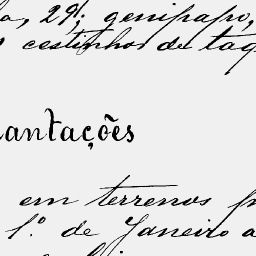 29; genipapo,
cestinhos de taq
antações
em terrenos
1.º de Janeiro a